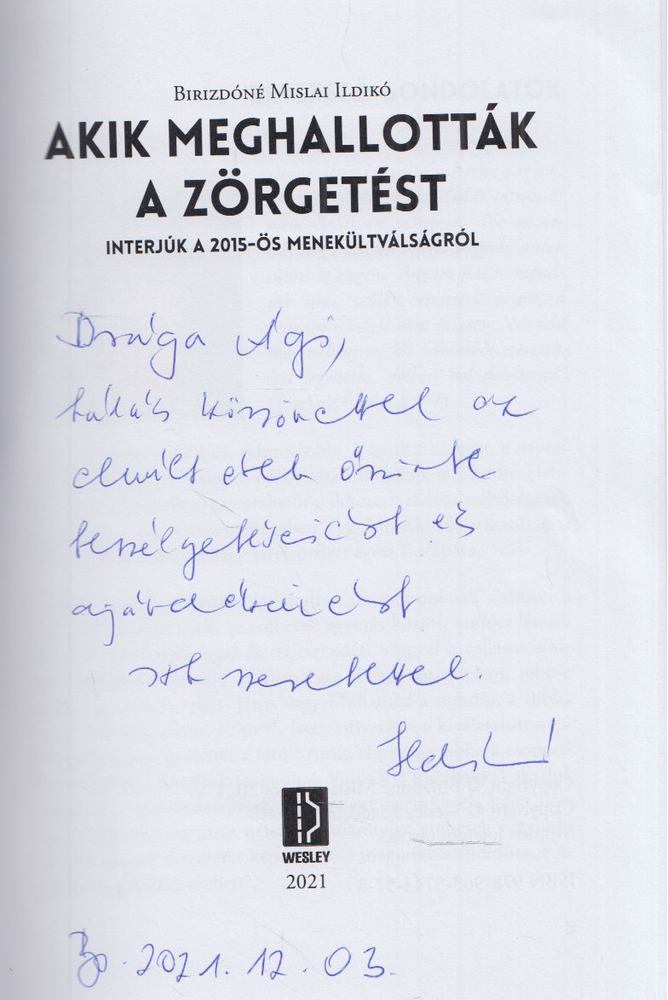 BIRIZDÓNÉ MISLAI ILDIKÓ
AKIK MEGHALLOTTÁK
A ZÖRGETÉST
INTERJÚK A 2015-ÖS MENEKÜLTVÁLSÁGRÓL
Drága Ági,
hálás köszönettel az
elmúlt évek őszinte
beszélgetéseiért és
sok szeretettel.
Ildikó
WESLEY
2021
Bp. 2021. 12. 03.